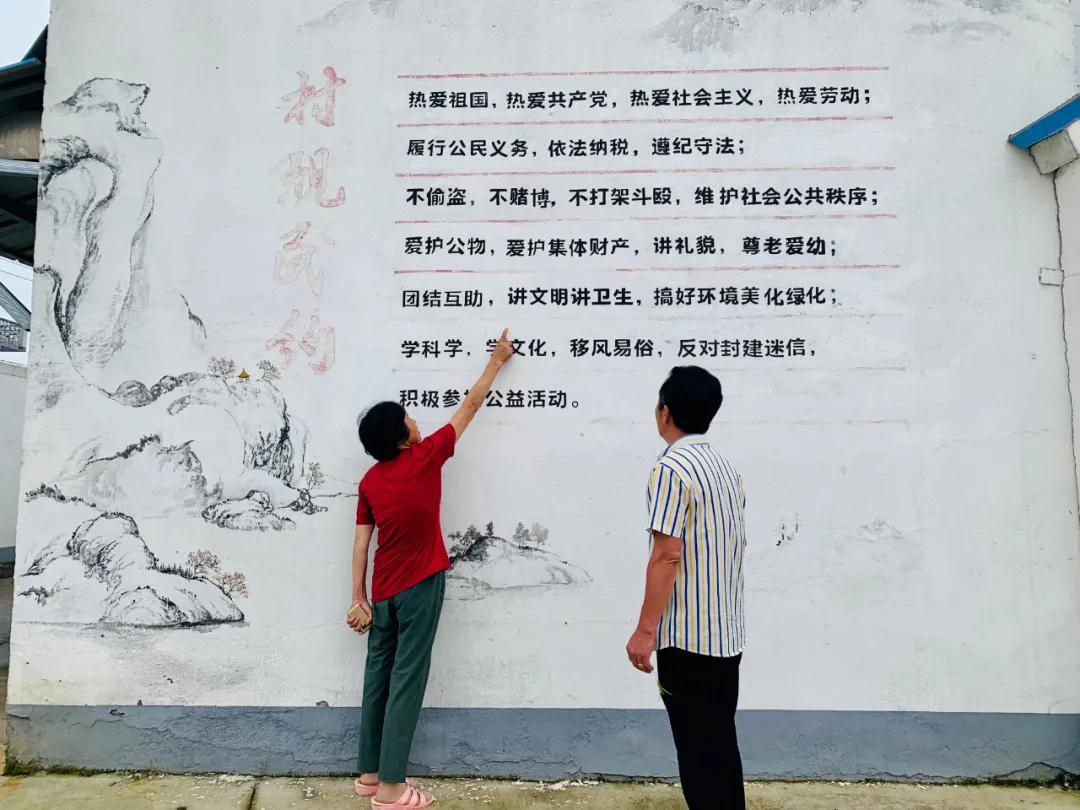 村规民约
热爱祖国，热爱共产党，热爱社会主义，热爱劳动；
履行公民义务，依法纳税，遵纪守法；
不偷盗，不赌博，不打架斗殴，维护社会公共秩序；
爱护公物，爱护集体财产，讲礼貌，尊老爱幼；
团结互助，讲文明讲卫生，搞好环境美化绿化；
学科学，学文化，移风易俗，反对封建迷信，
积极参加公益活动。